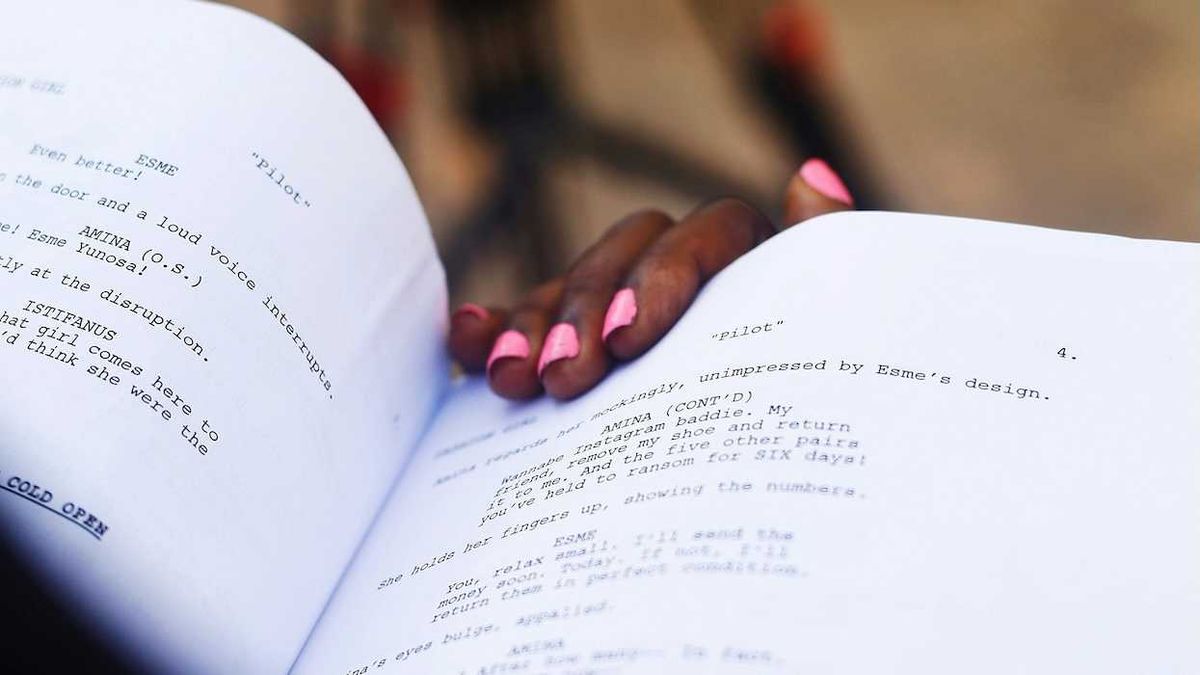 ION GIRL
"Pilot"
ESME
Even better!
the door and a loud voice interrupts.
AMINA (O.S.)
e! Esme Yunosa!
tly at the disruption.
ISTIFANUS
hat girl comes here to
'd think she were the
COLD OPEN
"Pilot"
4.
Amina regards her mockingly, unimpressed by Esme's design.
AMINA (CONT'D)
Wannabe Instagram baddie. My
friend, remove my shoe and return
it to me. And the five other pairs
you've held to ransom for SIX days!
She holds her fingers up, showing the numbers.
ESME
You, relax small. I'll send the
money soon. Today. If not, I'll
return them in perfect condition.
ina's eyes bulge, appalled.
AMINA
After how many-- In fact,